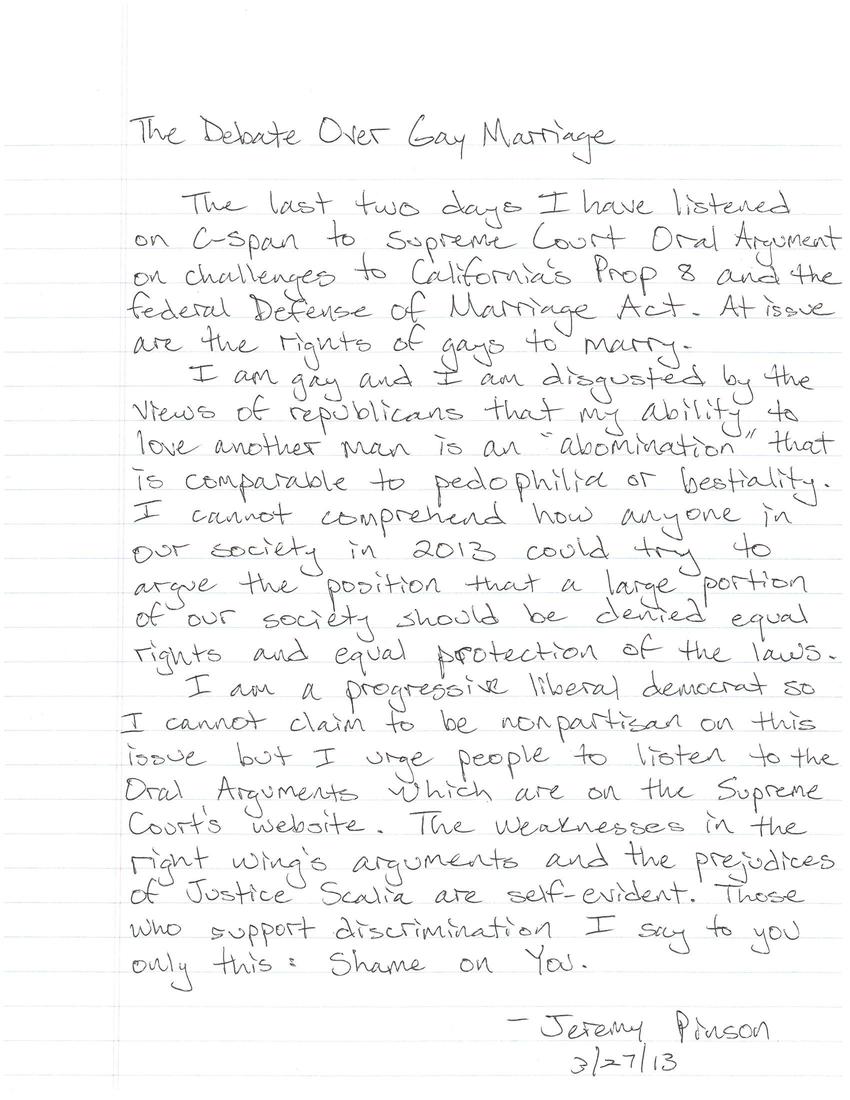 The Debate Over Gay Marriage
The last two days I have listened
on C-span to Supreme Court Oral Argument
on challenges to California's Prop 8 and the
federal Defense of Marriage Act. At issue
are the rights of gays to marry.
I am gay and I am disgusted by the
views of republicans that my ability to
love another man is an "abomination" that
is comparable to pedophilia or bestiality.
I cannot comprehend how anyone in
our society in 2013 could try to
argue the position that a large portion
of our society should be denied equal
rights and equal protection of the laws.
I am a progressive liberal democrat so
I cannot claim to be nonpartisan on this
issue but I urge people to listen to the
Oral Arguments which are on the Supreme
Court's website. The weaknesses in the
right wing's arguments and the prejudices
of Justice Scalia are self-evident. Those
who support discrimination I say to you
only this: Shame on You.
- Jeremy Pinson
3/27/13